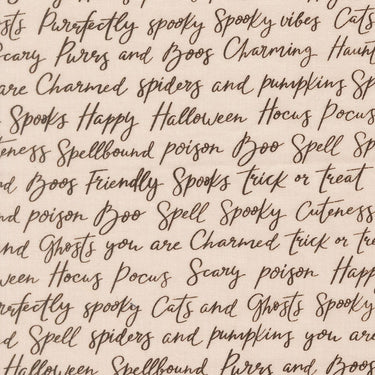 osts Purrfectly spooky Spooky vibes Cats
Scary Purrs and Boos Charming Haunt
are Charmed spiders and pumpkins Sp
Spooks Happy Halloween Hocus Pocus
teness Spellbound poison Boo Spell Sp
d Boos Friendly Spooks trick or treat
nd poison Boo Spell Spooky Cuteness
and Ghosts you are Charmed trick or tre
ween Hocus Pocus Scary poison Happ
rrfectly spooky Cats and Ghosts Spooky
d Spell spiders and pumpkins you are
Halloween Spellbound Purrs and Boos